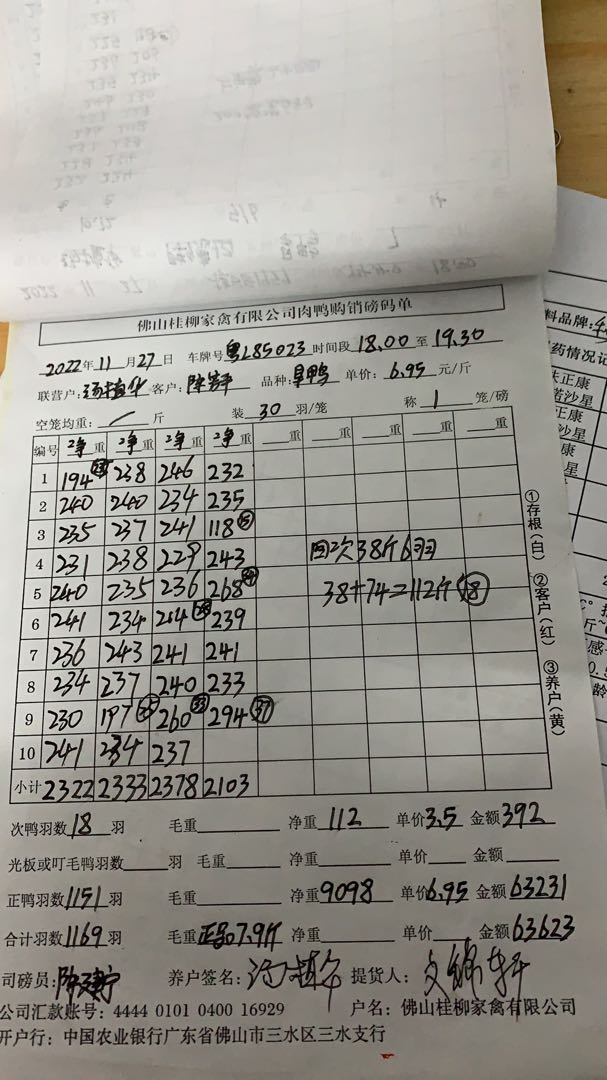 佛山桂柳家禽有限公司肉鸭购销磅码单
2022年11月27日 车牌号粤L85023时间段18.00至19.30
联营户:汤植华客户: 品种:旱鸭 单价:6.95元/斤
空笼均重: / 斤 装30羽/笼 称1笼/磅
编号 净重 净重 净重 净重 重 重 重 重 重
1 194 238 246 232
2 240 240 234 235
3 235 237 241 118⑮
4 231 238 229 243 回次38斤6羽
5 240 235 236 268 38+74=112斤⑱
6 241 234 214 239
7 236 243 241 241
8 234 237 240 233
9 230 197㉕ 260㉝ 294㊲
10 241 234 237
小计 2322 2333 2378 2103
①存根(白) ②客户(红) ③养户(黄)
次鸭羽数18羽 毛重 净重112 单价3.5 金额392
光板或叮毛鸭羽数 羽 毛重 净重 单价 金额
正鸭羽数1151羽 毛重 净重9098 单价6.95 金额63231
合计羽数1169羽 毛重正品7.9斤 净重 单价 金额63623
司磅员: 养户签名: 提货人:
公司汇款账号:4444 0101 0400 16929 户名:佛山桂柳家禽有限公司
开户行:中国农业银行广东省佛山市三水区三水支行
料品牌:
药情况记